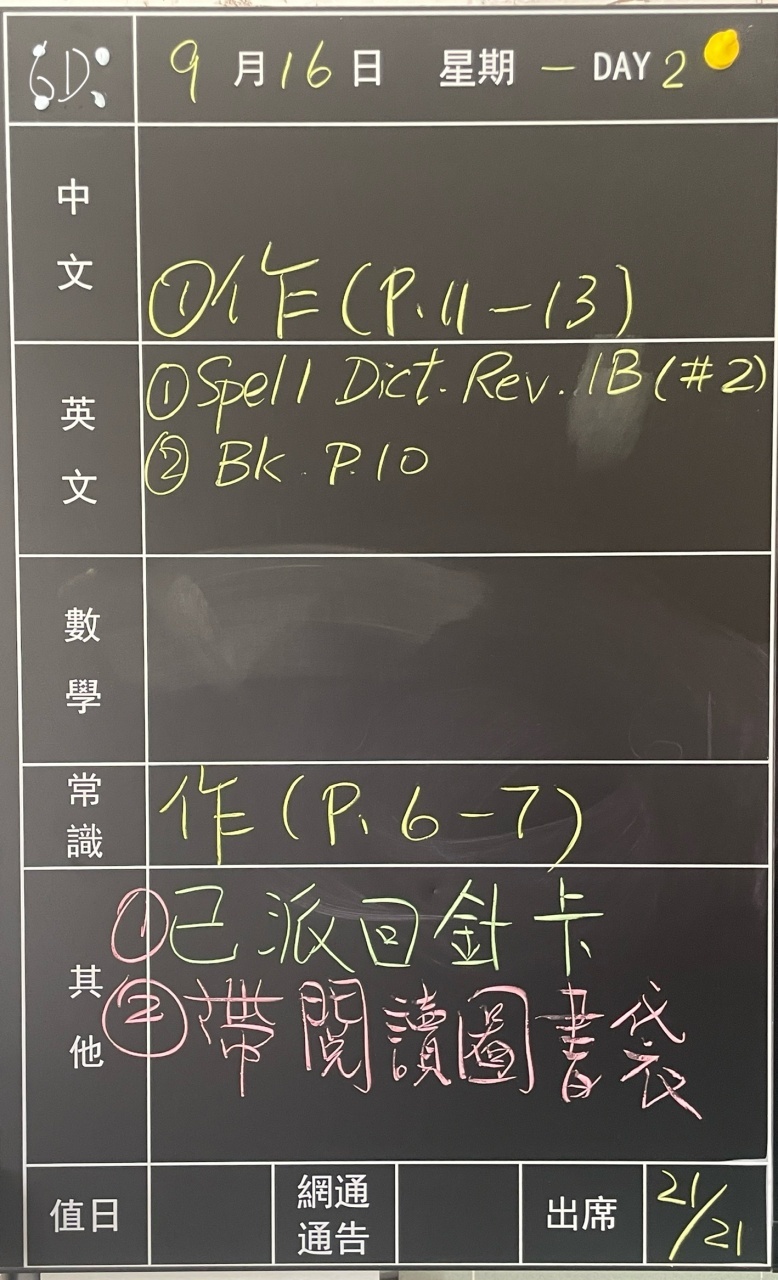 6D
9月16日 星期一 DAY 2
中文
①作(P.11-13)
英文
①Spell Dict. Rev. 1B(#2)
② Bk. P.10
數學
常識
作(P.6-7)
其他
①已派回針卡
②帶閱讀圖書袋
值日
網通通告
出席
21/21